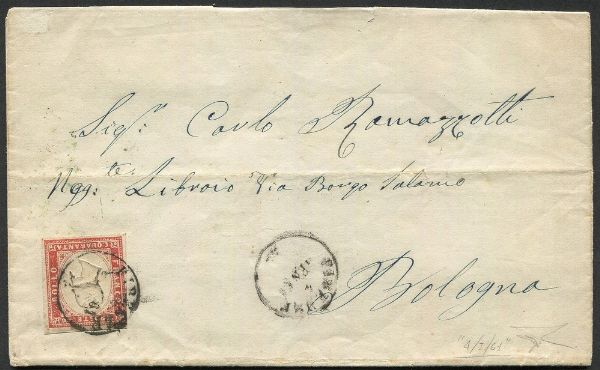 Sigr. Carlo Ramazzotti
Negte. Libraio Via Borgo Salamo
Bologna
C. QUARANTA
FRANCO
BOLLO
"4/I/61"